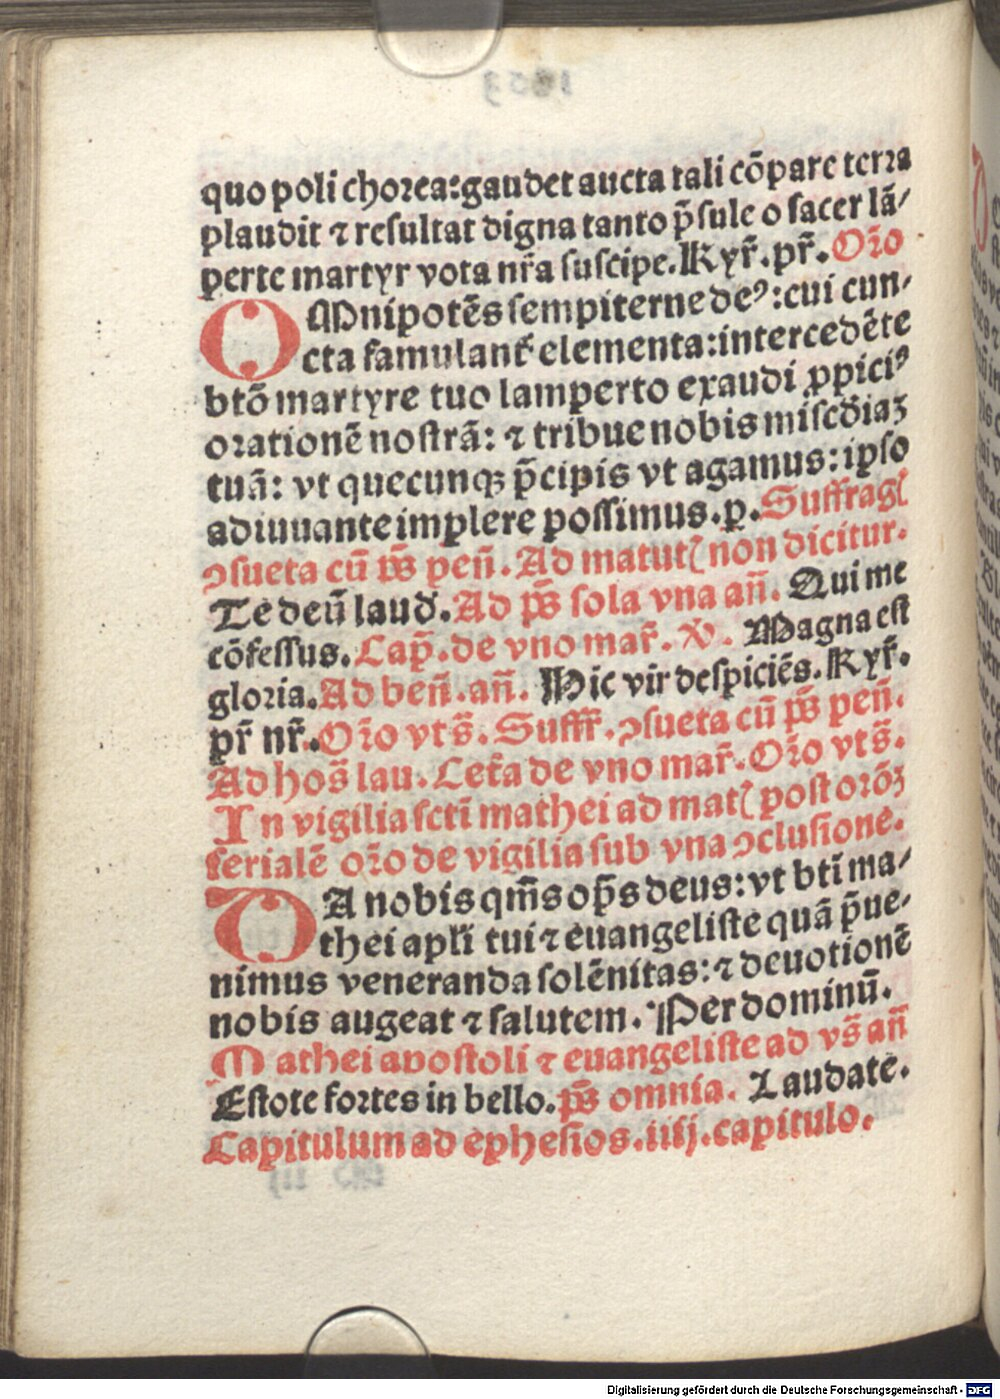 quo poli chorea: gaudet aucta tali cōpare terra
plaudit ⁊ resultat digna tanto p̄sule o sacer lā/
perte martyr vota nr̄a suscipe. Kyr̄. pr̄. Or̄o
OMnipotēs sempiterne deꝰ: cui cun/
cta famulant᷑ elementa: intercedēte
btō martyre tuo lamperto exaudi ꝓpiciꝰ
orationē nostrā: ⁊ tribue nobis misc̄diaꝫ
tuā: vt quecunqꝫ p̄cipis vt agamus: ipso
adiuuante implere possimus. p. Suffragł
ꝯsueta cū p̄s pen̄. Ad matutꝭ non dicitur.
Te deū laud̄. Ad p̄s sola vna an̄. Qui me
cōfessus. Cap̄. de vno mar̄. ꝟ. Magna est
gloria. Ad ben̄. an̄. Hic vir despiciēs. Kyr̄.
pr̄ nr̄. Or̄o vt s̄. Suffr̄. ꝯsueta cū p̄s pen̄.
Ad hos̄ lau. Cet̄a de vno mar̄. Or̄o vt s̄.
In vigilia sctī mathei ad matꝭ post orōꝫ
ferialē or̄o de vigilia sub vna ꝯclusione.
DA nobis qm̄s op̄s deus: vt btī ma/
thei apłi tui ⁊ euangeliste quā p̄ue/
nimus veneranda solēnitas: ⁊ deuotionē
nobis augeat ⁊ salutem. Per dominū.
Mathei apostoli ⁊ euangeliste ad vs̄ an̄
Estote fortes in bello. p̄s omnia. Laudate.
Capitulum ad ephesios. iiij. capitulo.
Digitalisierung gefördert durch die Deutsche Forschungsgemeinschaft - DFG